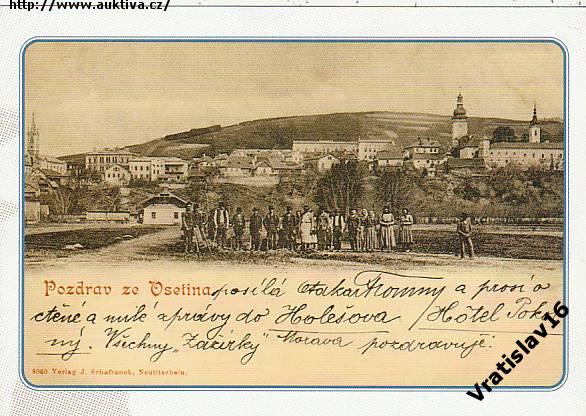 http://www.auktiva.cz/
Pozdrav ze Vsetina posílá Otakar Fromny a prosí o
ctěné a milé zprávy do Holešova / Hôtel Pok
ný. Všechny „Zázirky" Morava pozdravuje.
8060 Verlag J. Schafranek, Neutitschein.
Vratislav16